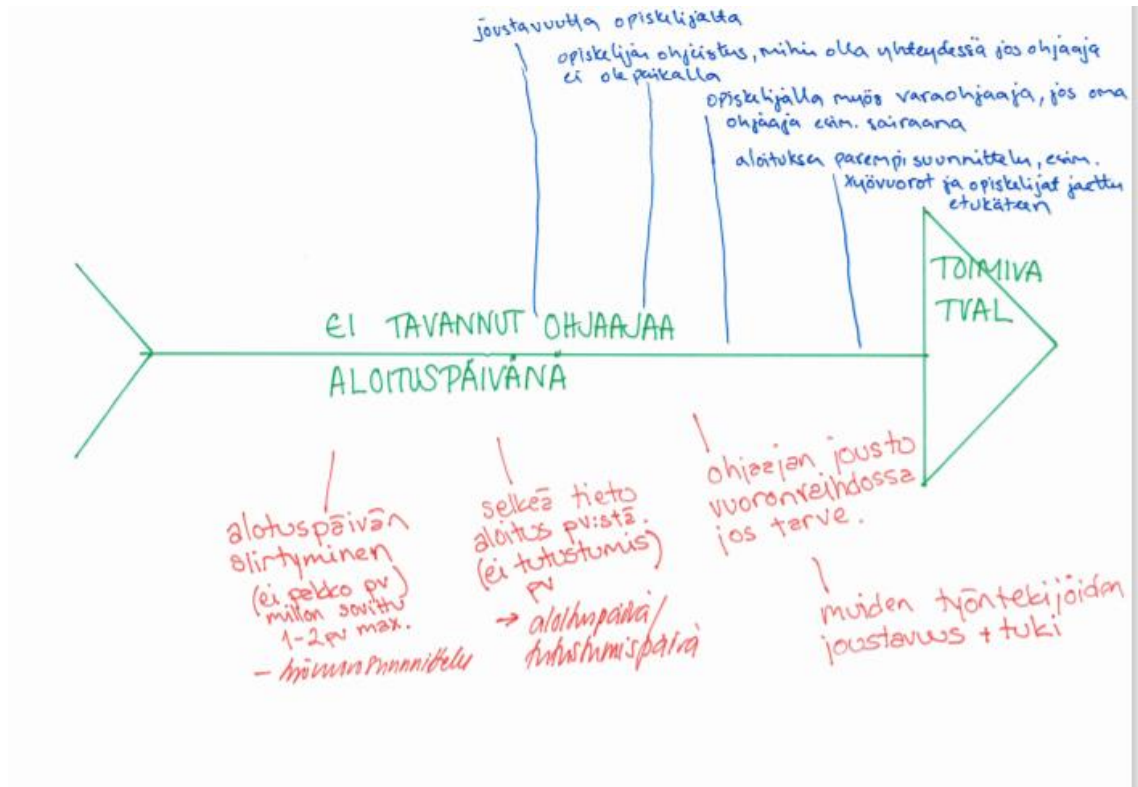 joustavuutta opiskelijalta
opiskelijan ohjeistus, mihin olla yhteydessä jos ohjaaja
ei ole paikalla
opiskelijalla myös varaohjaaja, jos oma
ohjaaja esim. sairaana
aloituksen parempi suunnittelu, esim.
työvuorot ja opiskelijat jaettu
etukäteen
TOIMIVA
TVAL
EI TAVANNUT OHJAAJAA
ALOITUSPÄIVÄNÄ
alotuspäivän
siirtyminen
(ei pakko pv)
millon sovittu
1-2 pv max.
- työvuorosuunnittelu
selkeä tieto
aloitus pv:stä.
(ei tutustumis)
pv
→ aloituspäivä/
tutustumispäivä
ohjaajan jousto
vuoronvaihdossa
jos tarve.
muiden työntekijöiden
joustavuus + tuki